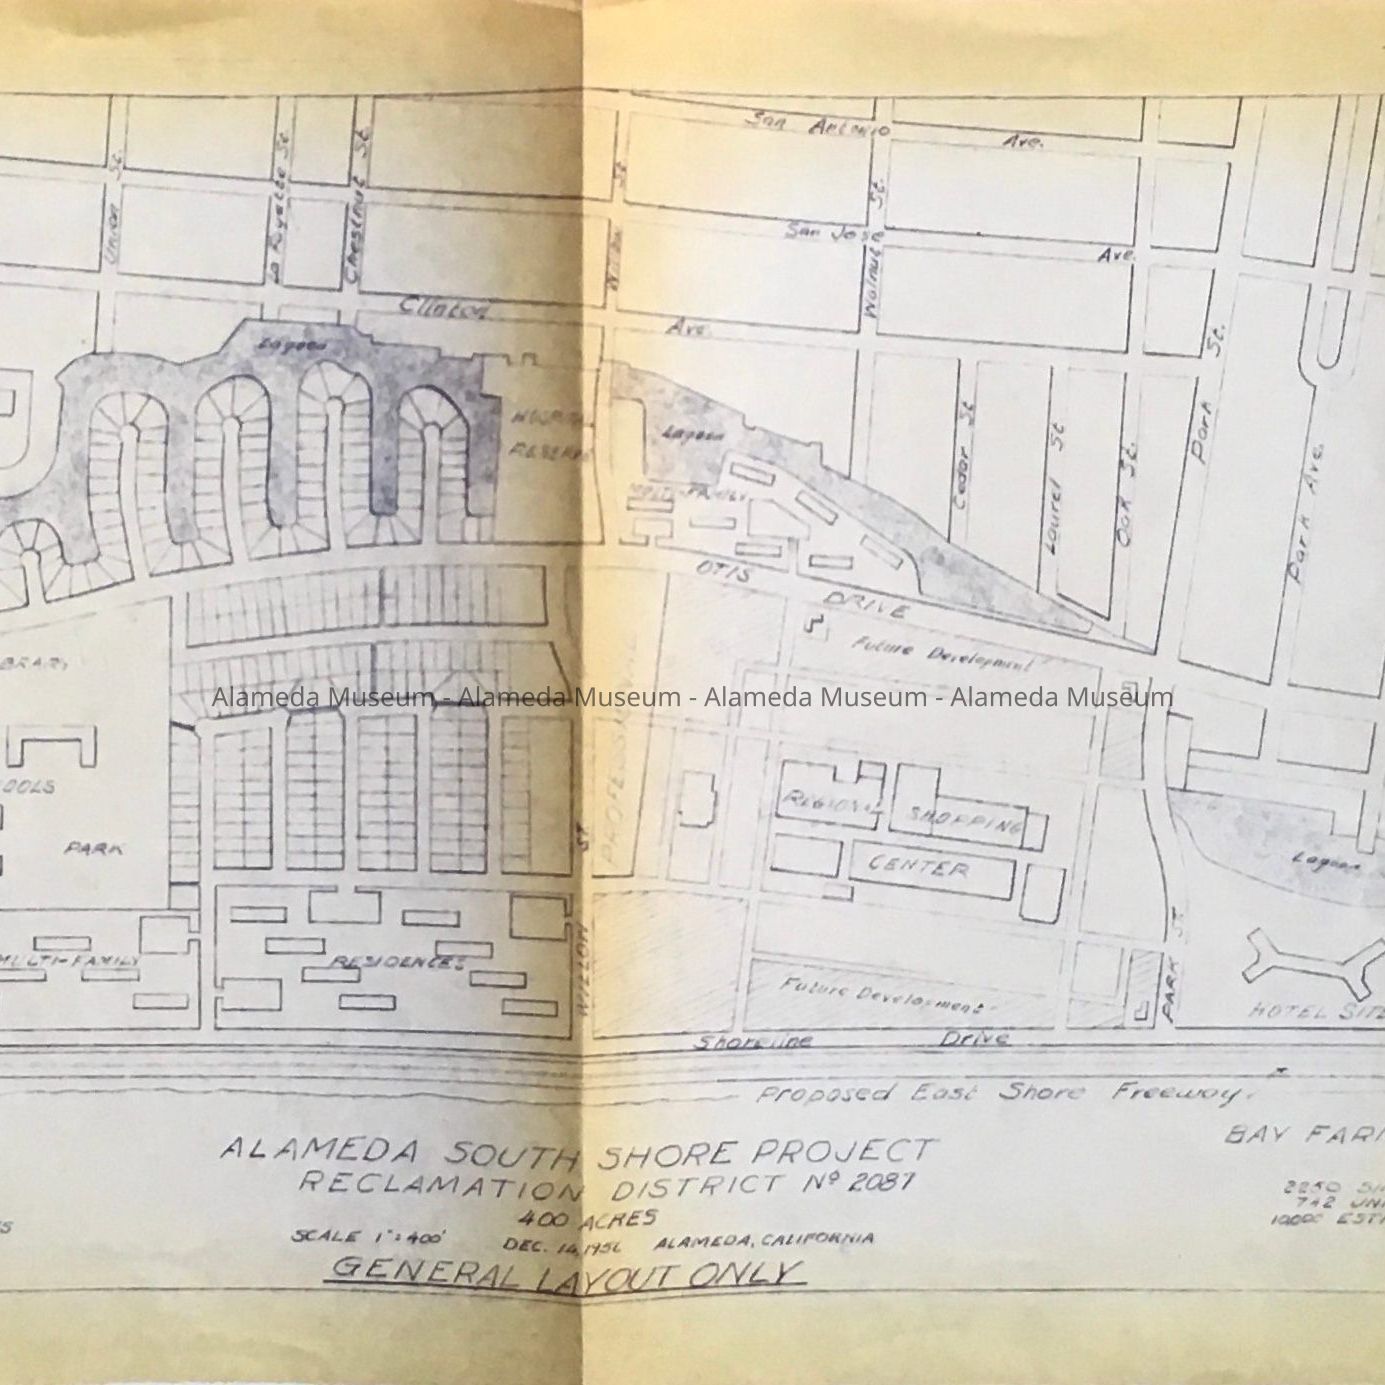 San Antonio Ave.
Union St.
La Fayette St
Chestnut St
St
Willow
St.
San Jose Ave.
Walnut
Clinton Ave.
Lagoon
Park St.
HOSPITAL
RESERVE
Lagoon
MULTI-FAMILY
Cedar St
Laurel St
Oak St.
Park Ave.
OTIS DRIVE
Future Development
Alameda Museum - Alameda Museum - Alameda Museum - Alameda Museum
PROFESSIONAL
PARK
REGIONAL SHOPPING
CENTER
Lagoon
WILLOW ST
MULTI-FAMILY RESIDENCES
Future Development
PARK ST
HOTEL SITE
Shoreline Drive
Proposed East Shore Freeway.
ALAMEDA SOUTH SHORE PROJECT
BAY FARM
RECLAMATION DISTRICT Nº 2087
400 ACRES
SCALE 1"=400' DEC. 14, 1956 ALAMEDA, CALIFORNIA
GENERAL LAYOUT ONLY